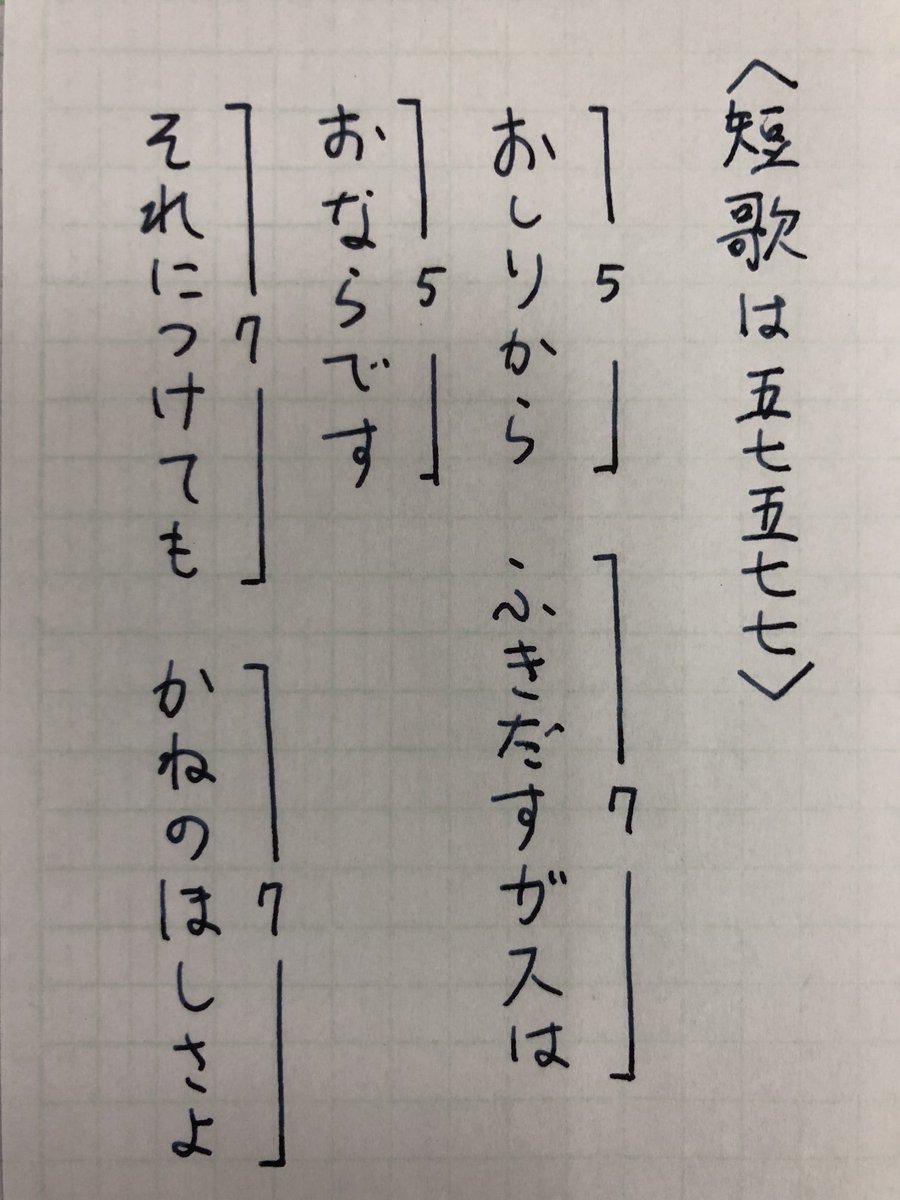 〈短歌は五七五七七〉
5 7
おしりから ふきだすガスは
5
おならです
7 7
それにつけても かねのほしさよ